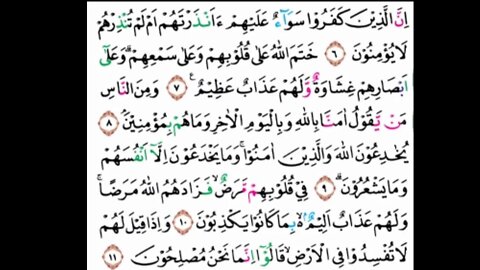 اِنَّ الَّذِيْنَ كَفَرُوْا سَوَآءٌ عَلَيْهِمْ ءَاَنْذَرْتَهُمْ اَمْ لَمْ تُنْذِرْهُمْ
لَا يُؤْمِنُوْنَ ٦ خَتَمَ اللهُ عَلٰى قُلُوْبِهِمْ وَعَلٰى سَمْعِهِمْ ۗ وَعَلٰٓى
اَبْصَارِهِمْ غِشَاوَةٌ وَّلَهُمْ عَذَابٌ عَظِيْمٌ ࣖ ٧ وَمِنَ النَّاسِ
مَنْ يَّقُوْلُ اٰمَنَّا بِاللهِ وَبِالْيَوْمِ الْاٰخِرِ وَمَا هُمْ بِمُؤْمِنِيْنَ ۘ ٨
يُخٰدِعُوْنَ اللهَ وَالَّذِيْنَ اٰمَنُوْا ۚ وَمَا يَخْدَعُوْنَ اِلَّآ اَنْفُسَهُمْ
وَمَا يَشْعُرُوْنَ ۗ ٩ فِيْ قُلُوْبِهِمْ مَّرَضٌ ۙ فَزَادَهُمُ اللهُ مَرَضًا ۚ
وَلَهُمْ عَذَابٌ اَلِيْمٌ ۢ ەۙ بِمَا كَانُوْا يَكْذِبُوْنَ ١٠ وَاِذَا قِيْلَ لَهُمْ
لَا تُفْسِدُوْا فِى الْاَرْضِ ۙ قَالُوْٓا اِنَّمَا نَحْنُ مُصْلِحُوْنَ ١١